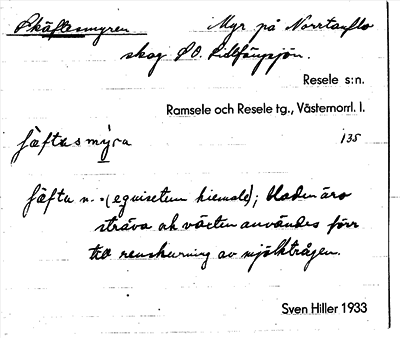 Skäftesmyren Myr på Norrtanflo
skog S O. Lidtjänpsjön.
Resele s:n.
Ramsele och Resele tg., Västernorrl. l.
fäftasmýra 135
fäfta n. - (equisetum hiemale); bladen äro
sträva och växten användes förr
till renskurning av mjölktrågen.
Sven Hiller 1933